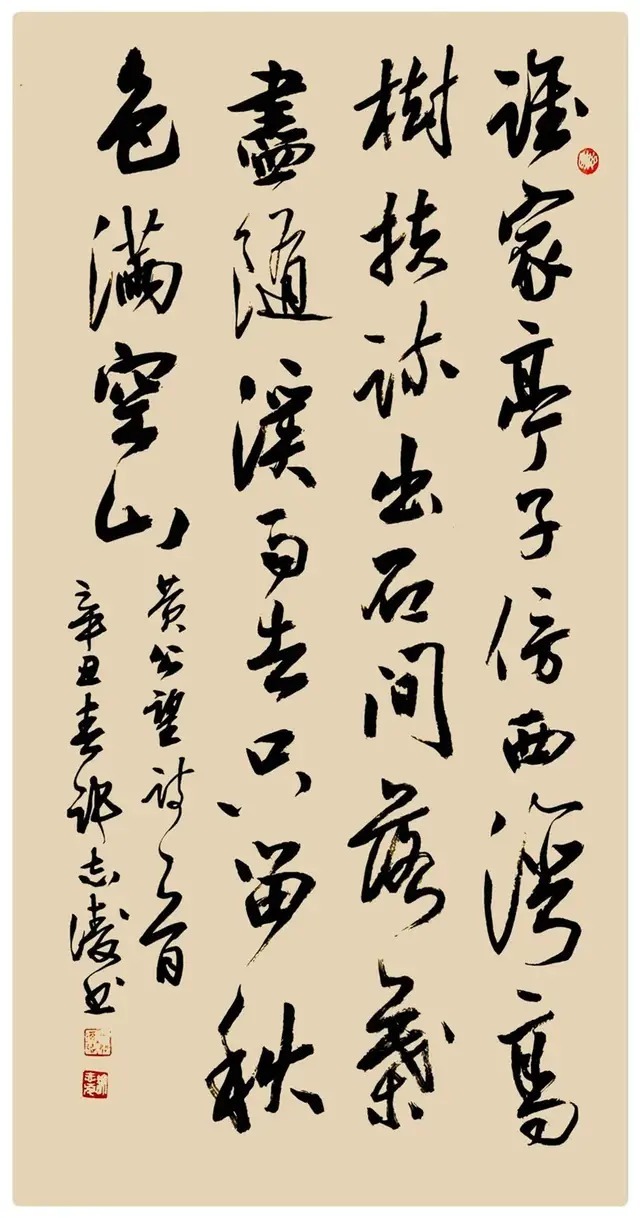 誰家亭子傍西灣高
樹扶疏出石間落葉
盡隨溪雨去只留秋
色滿空山
黃公望詩一首
辛丑春許志凌书